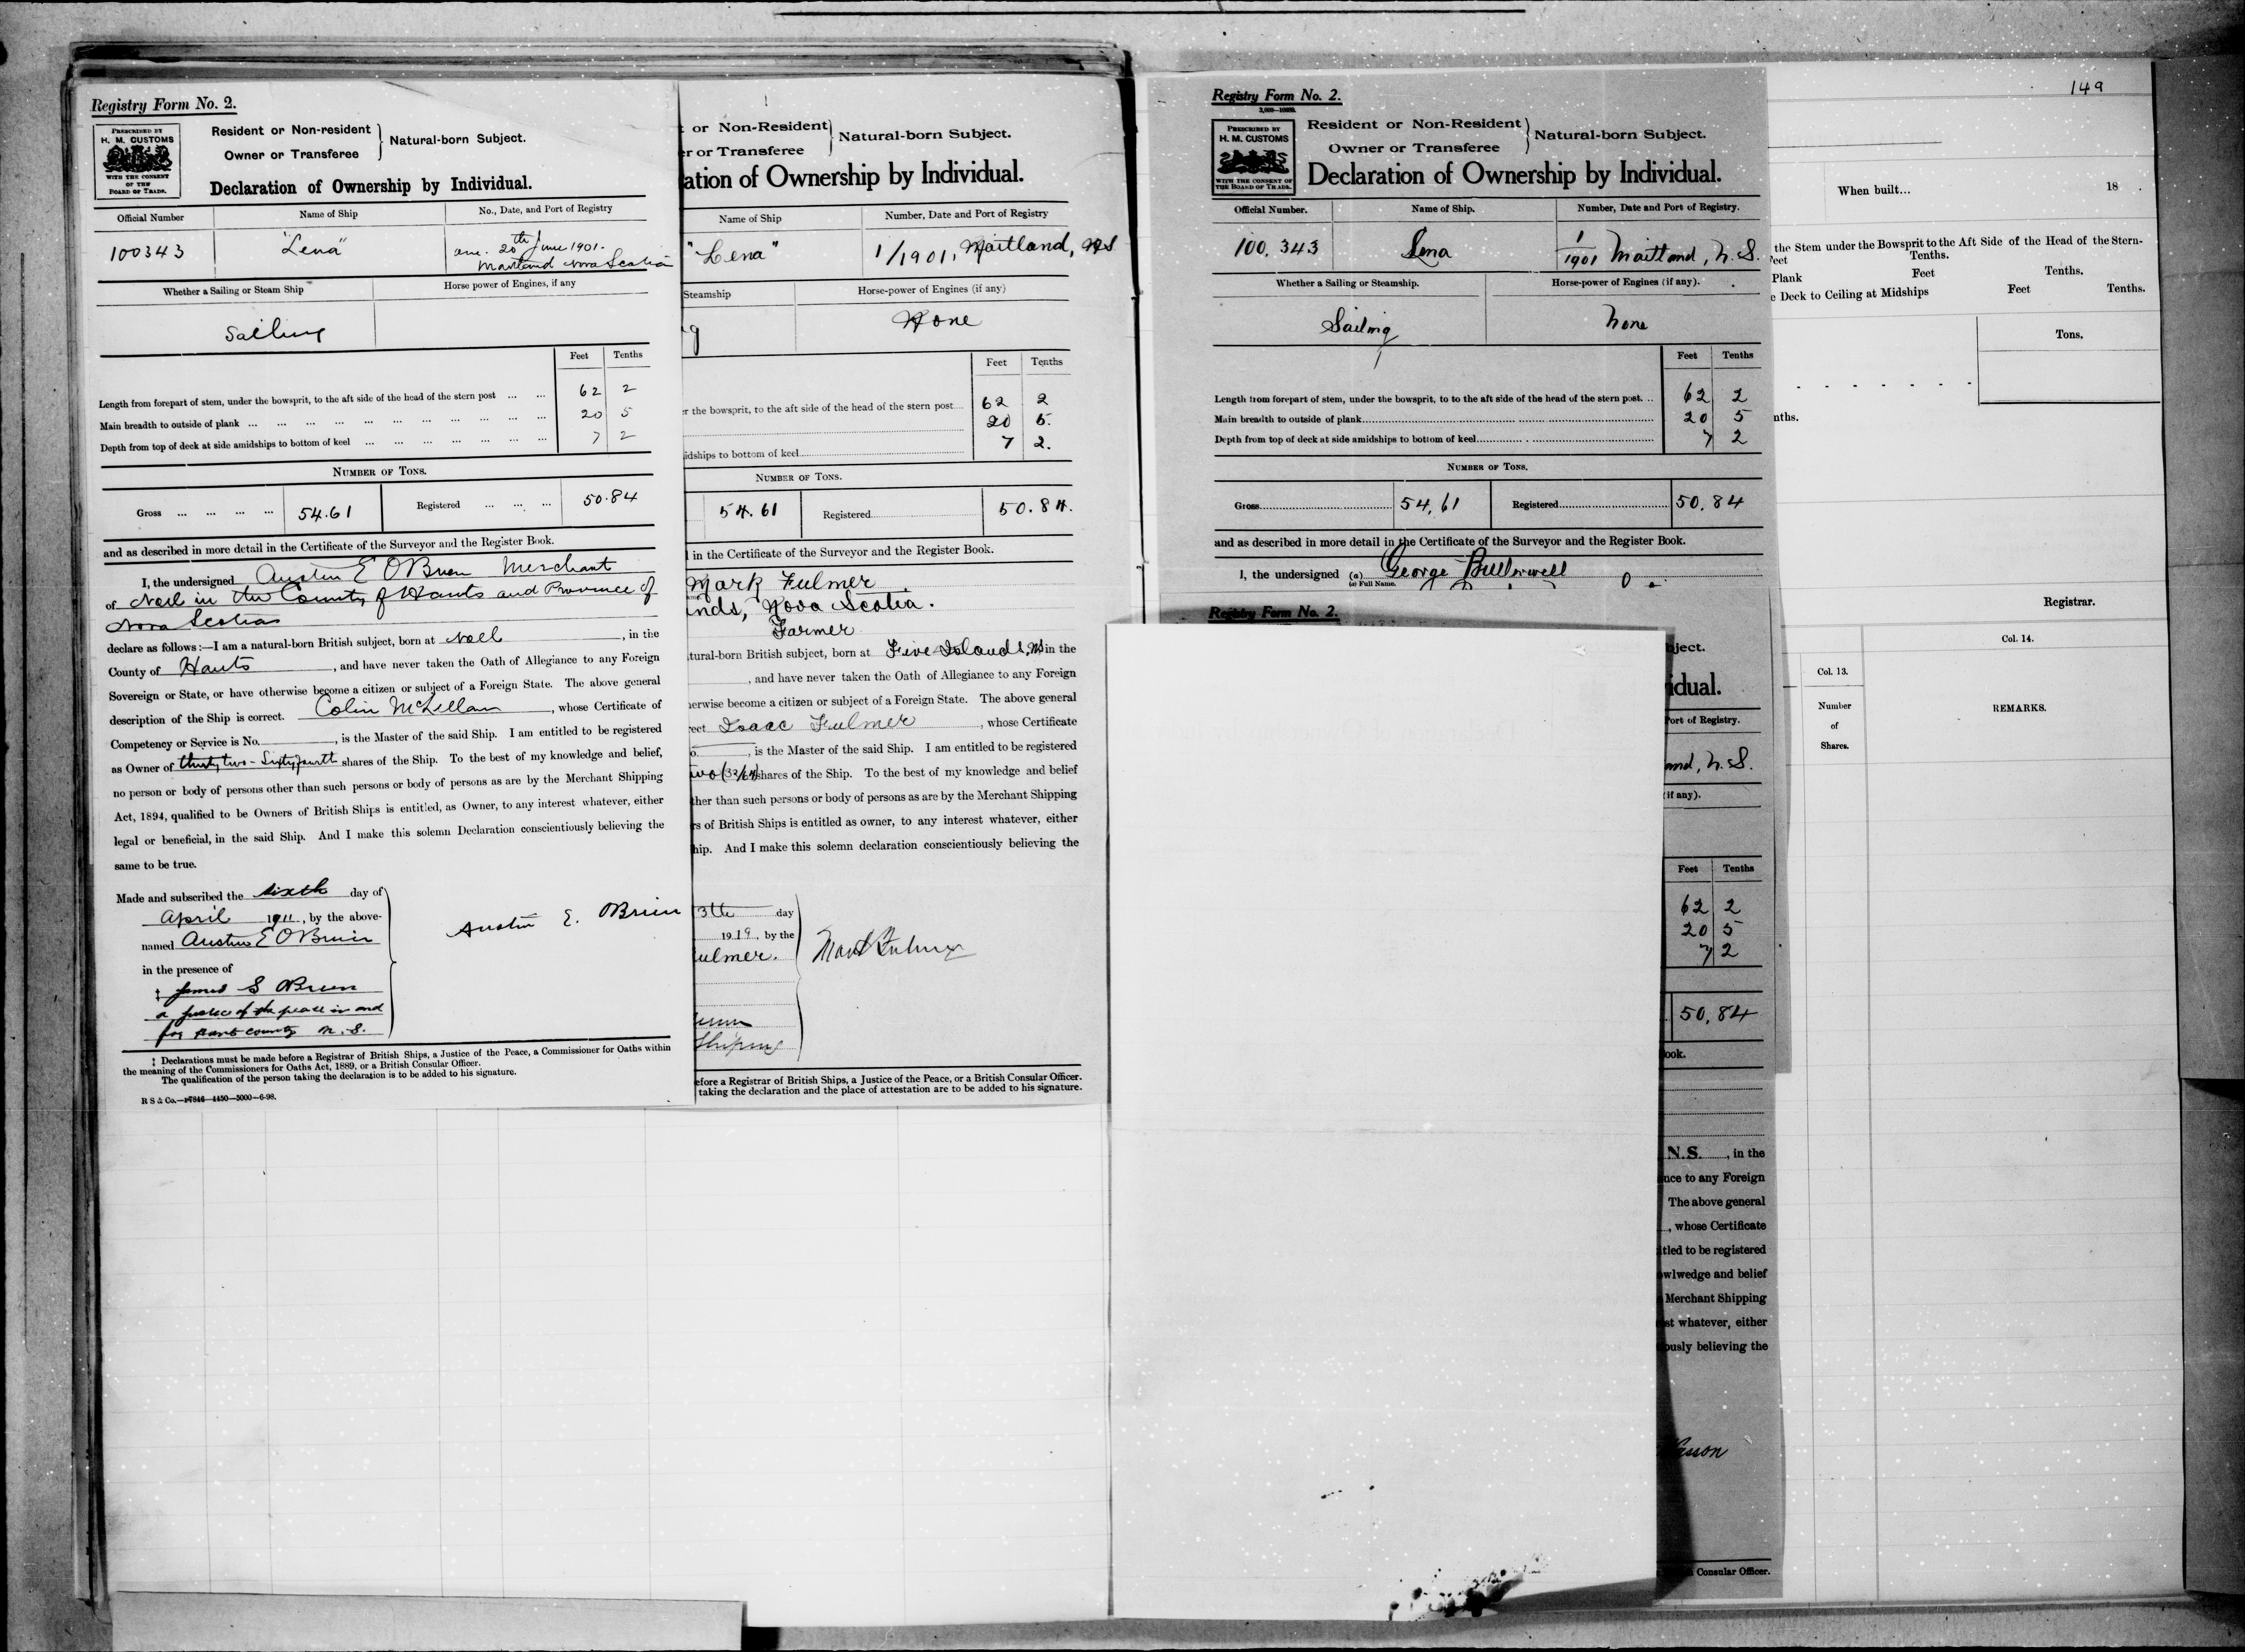 Registry Form No. 2.
PRESCRIBED BY
H. M. CUSTOMS
WITH THE CONSENT
OF THE
BOARD OF TRADE.
Resident or Non-resident
Owner or Transferee
Natural-born Subject.
Declaration of Ownership by Individual.
Official Number
Name of Ship
No., Date, and Port of Registry
100343
"Lena"
one. 20th June 1901.
Maitland Nova Scotia
Whether a Sailing or Steam Ship
Horse power of Engines, if any
Sailing
Feet Tenths
Length from forepart of stem, under the bowsprit, to the aft side of the head of the stern post ... ... 62 2
Main breadth to outside of plank ... ... ... ... ... ... ... ... ... ... ... 20 5
Depth from top of deck at side amidships to bottom of keel ... ... ... ... ... ... ... 7 2
NUMBER OF TONS.
Gross ... ... ... ... 54.61 Registered ... ... ... 50.84
and as described in more detail in the Certificate of the Surveyor and the Register Book.
I, the undersigned Austin E OBrien Merchant
of Noel in the County of Hants and Province of
Nova Scotia
declare as follows:—I am a natural-born British subject, born at Noel, in the
County of Hants, and have never taken the Oath of Allegiance to any Foreign
Sovereign or State, or have otherwise become a citizen or subject of a Foreign State. The above general
description of the Ship is correct. Colin McLellan, whose Certificate of
Competency or Service is No. , is the Master of the said Ship. I am entitled to be registered
as Owner of thirty two - Sixty fourth shares of the Ship. To the best of my knowledge and belief,
no person or body of persons other than such persons or body of persons as are by the Merchant Shipping
Act, 1894, qualified to be Owners of British Ships is entitled, as Owner, to any interest whatever, either
legal or beneficial, in the said Ship. And I make this solemn Declaration conscientiously believing the
same to be true.
Made and subscribed the sixth day of
April 1911, by the above-
named Austin E OBrien
in the presence of
‡ James S OBrien
a justice of the peace in and
for Hants county N. S.
Austin E. OBrien
‡ Declarations must be made before a Registrar of British Ships, a Justice of the Peace, a Commissioner for Oaths within
the meaning of the Commissioners for Oaths Act, 1889, or a British Consular Officer.
The qualification of the person taking the declaration is to be added to his signature.
R S & Co.—17846—4450—5000—6-98.
or Non-Resident
er or Transferee
Natural-born Subject.
ation of Ownership by Individual.
Name of Ship
Number, Date and Port of Registry
"Lena"
1/1901, Maitland, NS
Steamship
Horse-power of Engines (if any)
g
None
Feet Tenths
r the bowsprit, to the aft side of the head of the stern post.... 62 2
20 5.
idships to bottom of keel 7 2.
NUMBER OF TONS.
54.61 Registered 50.84.
l in the Certificate of the Surveyor and the Register Book.
Mark Fulmer
nds, Nova Scotia.
Farmer
tural-born British subject, born at Five Islands, NS in the
, and have never taken the Oath of Allegiance to any Foreign
erwise become a citizen or subject of a Foreign State. The above general
rect Isaac Fulmer, whose Certificate
o. , is the Master of the said Ship. I am entitled to be registered
wo (32/64) shares of the Ship. To the best of my knowledge and belief
ther than such persons or body of persons as are by the Merchant Shipping
rs of British Ships is entitled as owner, to any interest whatever, either
hip. And I make this solemn declaration conscientiously believing the
3th day
1919, by the
ulmer.
Mark Fulmer
Shiping
efore a Registrar of British Ships, a Justice of the Peace, or a British Consular Officer.
taking the declaration and the place of attestation are to be added to his signature.
Registry Form No. 2.
PRESCRIBED BY
H. M. CUSTOMS
WITH THE CONSENT OF
THE BOARD OF TRADE.
Resident or Non-Resident
Owner or Transferee
Natural-born Subject.
Declaration of Ownership by Individual.
Official Number.
Name of Ship.
Number, Date and Port of Registry.
100,343
Lena
1/1901 Maitland, N.S.
Whether a Sailing or Steamship.
Horse-power of Engines (if any).
Sailing
None
Feet Tenths
Length from forepart of stem, under the bowsprit, to to the aft side of the head of the stern post... 62 2
Main breadth to outside of plank 20 5
Depth from top of deck at side amidships to bottom of keel 7 2
NUMBER OF TONS.
Gross 54,61 Registered 50,84
and as described in more detail in the Certificate of the Surveyor and the Register Book.
I, the undersigned (a) George
(a) Full Name.
Registry Form No. 2.
bject.
idual.
Port of Registry.
and, N.S.
if any).
Feet Tenths
62 2
20 5
7 2
50,84
ook.
N.S. , in the
nce to any Foreign
The above general
, whose Certificate
tled to be registered
owlwedge and belief
Merchant Shipping
st whatever, either
ously believing the
Consular Officer.
149
When built... 18
the Stem under the Bowsprit to the Aft Side of the Head of the Stern-
Feet Tenths.
Plank Feet Tenths.
e Deck to Ceiling at Midships Feet Tenths.
Tons.
nths.
Registrar.
Col. 13.
Col. 14.
Number
of
Shares.
REMARKS.